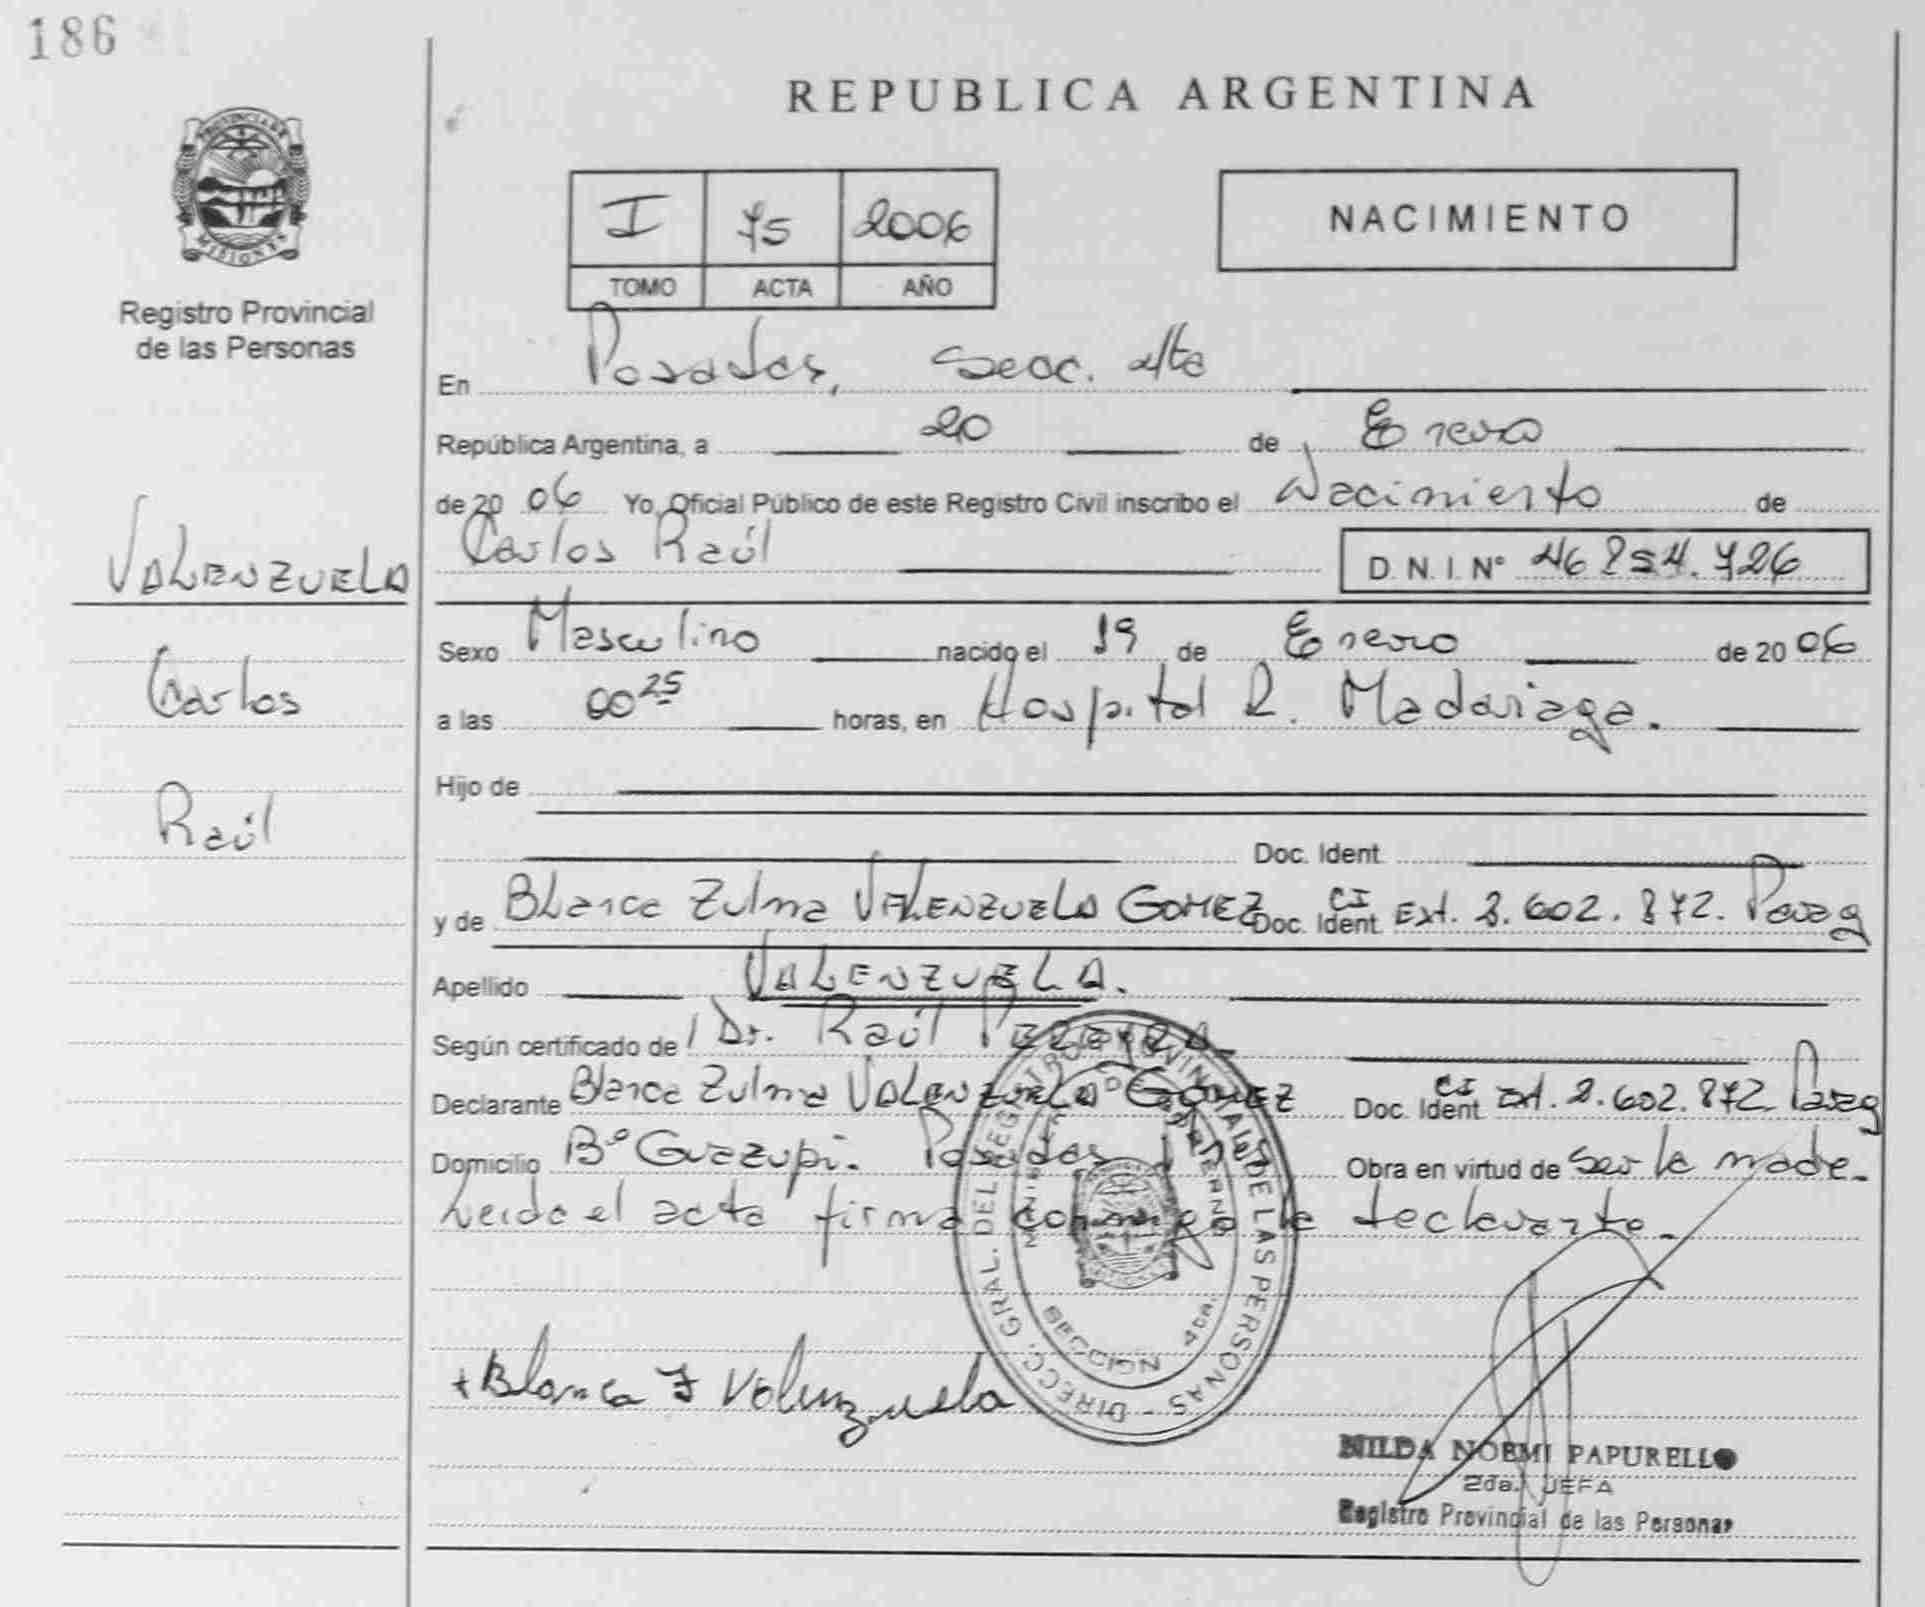 186
REPUBLICA ARGENTINA
PROVINCIA DE
MISIONES
Registro Provincial
de las Personas
I 75 2006
TOMO ACTA AÑO
NACIMIENTO
En Posadas, Secc. 4ta
República Argentina, a 20 de Enero
de 2006 Yo, Oficial Público de este Registro Civil inscribo el Nacimiento de
VALENZUELA
Carlos Raúl
D.N.I. N° 46.254.726
Sexo Masculino nacido el 19 de Enero de 2006
Carlos
a las 00 25 horas, en Hospital R. Madariaga.
Hijo de
Raúl
Doc. Ident.
y de Blanca Zulma VALENZUELA GOMEZ Doc. Ident. CI Ext. 2.602.872. Parag
Apellido VALENZUELA.
Según certificado de Dr. Raúl PEREYRA
Declarante Blanca Zulma VALENZUELA GOMEZ Doc. Ident. CI Ext. 2.602.872 Parag
Domicilio B° Guazupi. Posadas Obra en virtud de ser la madre.
Leida el acta firma conmigo la declarante.
DIRECC. GRAL. DEL REGISTRO PROVINCIAL DE LAS PERSONAS
SECCION 4ta.
+Blanca Z Valenzuela
NILDA NOEMI PAPURELLO
2da. JEFA
Registro Provincial de las Personas